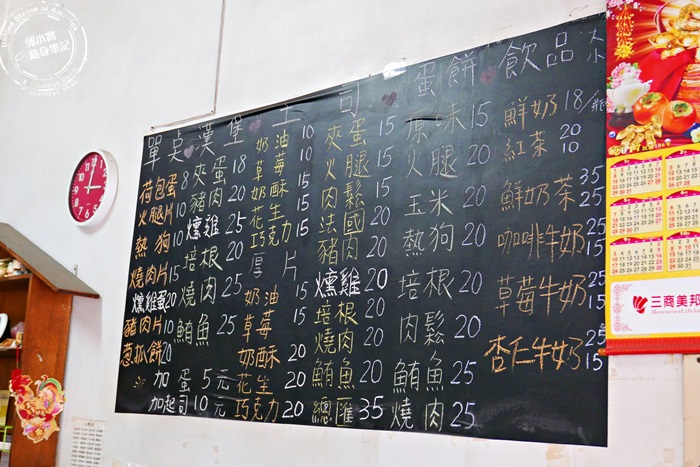 郭小寶
隨身筆記
單點 漢堡 土司 蛋餅 飲品 大 小
荷包蛋 8
火腿片 10
熱狗 10
燒肉片 15
燻雞蛋 20
豬肉片 10
蔥抓餅 20
加蛋 5元
加起司 10元
夾蛋 18
豬肉 20
燻雞 25
培根 20
燒肉 25
鮪魚 25
奶油 10
草莓 10
奶酥 15
花生 15
巧克力 15
厚片
奶油 15
草莓 15
奶酥 20
花生 20
巧克力 20
夾蛋 15
火腿 15
肉鬆 15
法國 20
豬肉 20
燻雞 20
培根 20
燒肉 20
鮪魚 20
總匯 35
原味 15
火腿 20
玉米 20
熱狗 20
培根 20
肉鬆 20
鮪魚 25
燒肉 25
鮮奶 18/瓶
紅茶 20 10
鮮奶茶 35 25
咖啡牛奶 25 15
草莓牛奶 25 15
杏仁牛奶 25 15
三商美邦